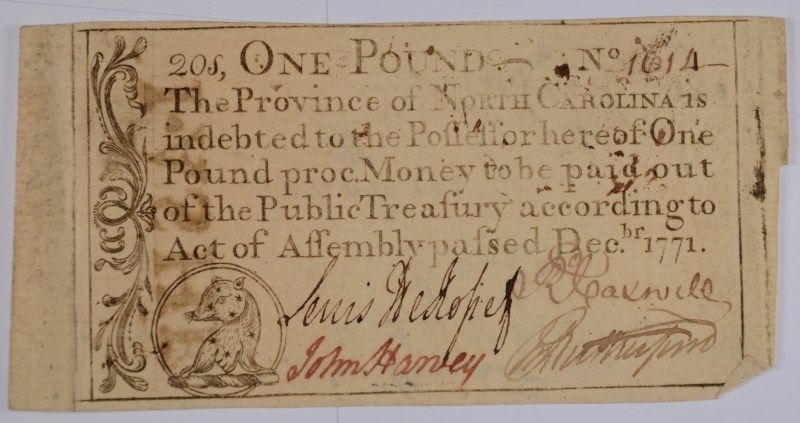 20s, ONE POUND. No 1614
The Province of NORTH CAROLINA is
indebted to the Poſſeſſor hereof One
Pound proc. Money to be paid out
of the Public Treaſury according to
Act of Aſſembly paſsed Dec.br 1771.
Lewis
John Harvey